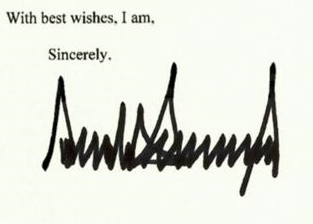 With best wishes, I am,
Sincerely,